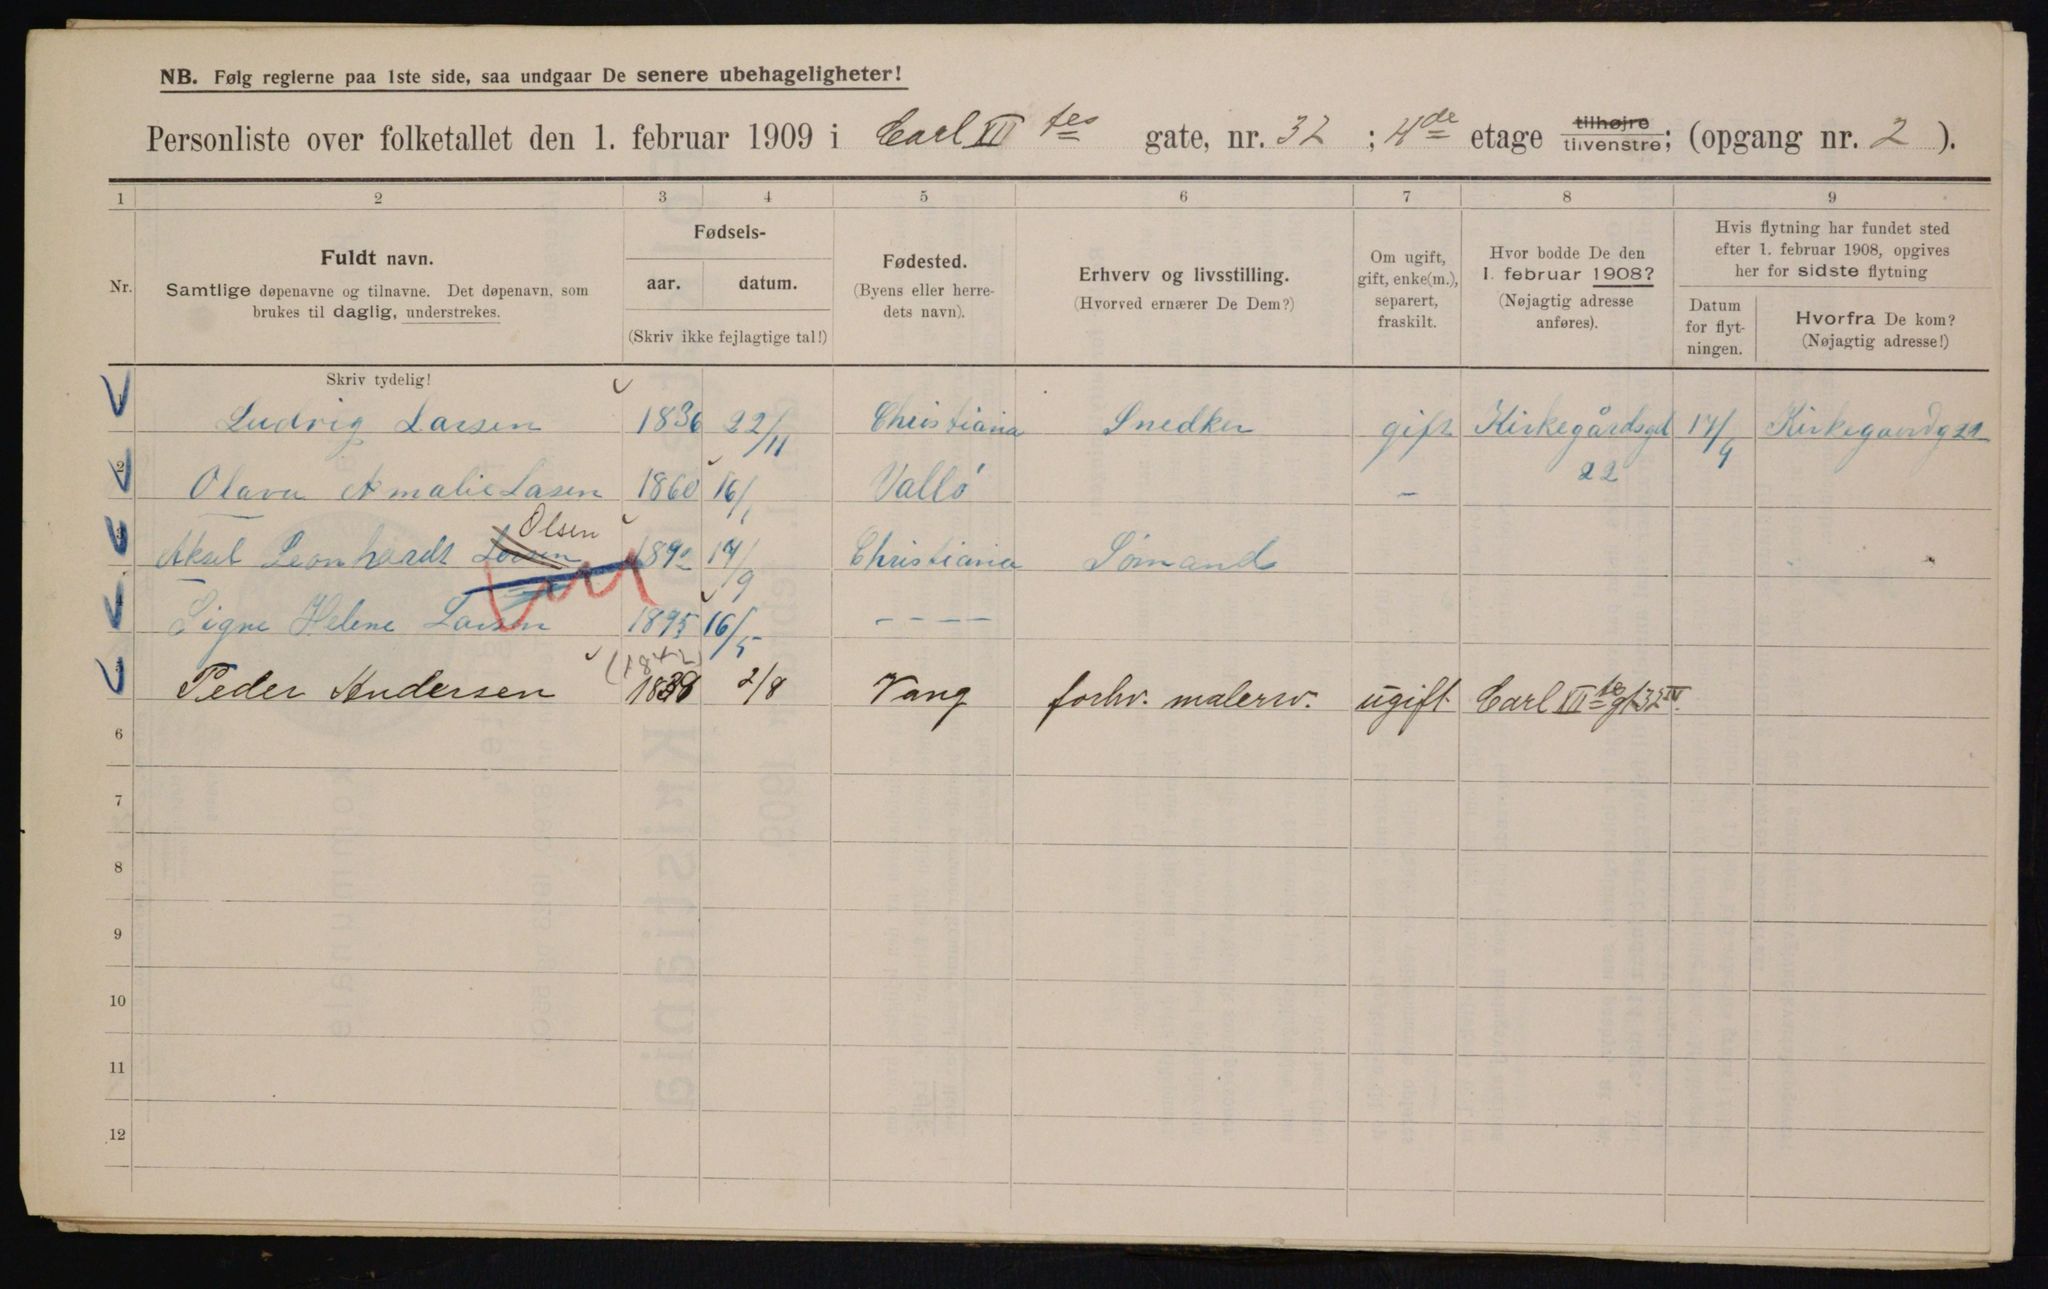 NB. Følg reglerne paa 1ste side, saa undgaar De senere ubehageligheter!
Personliste over folketallet den 1. februar 1909 i Carl XII tes gate, nr. 32 ; 4de etage tilhøjre tilvenstre; (opgang nr. 2 ).
1 2 3 4 5 6 7 8 9
Nr.
Fuldt navn.
Samtlige døpenavne og tilnavne. Det døpenavn, som
brukes til daglig, understrekes.
Skriv tydelig!
Fødsels-
aar. datum.
(Skriv ikke fejlagtige tal!)
Fødested.
(Byens eller herre-
dets navn).
Erhverv og livsstilling.
(Hvorved ernærer De Dem?)
Om ugift,
gift, enke(m.),
separert,
fraskilt.
Hvor bodde De den
1. februar 1908?
(Nøjagtig adresse
anføres).
Hvis flytning har fundet sted
efter 1. februar 1908, opgives
her for sidste flytning
Datum
for flyt-
ningen.
Hvorfra De kom?
(Nøjagtig adresse!)
1 Ludvig Larsen 1836 22/11 Christiania Snedker gift Kirkegårdsgd 22 17/9 Kirkegaardg
2 Olava Amalie Lasen 1860 16/1 Valló –
3 Aksel Leonhardt Larsen Olsen 1892 17/9 Christiania Sömand
4 Signe Helene Larsen 1895 16/5 – – – –
(1842)
5 Peder Andersen 1838 2/8 Vang forhv. malersv. ugift Carl XII te gt 32 IV.
6
7
8
9
10
11
12